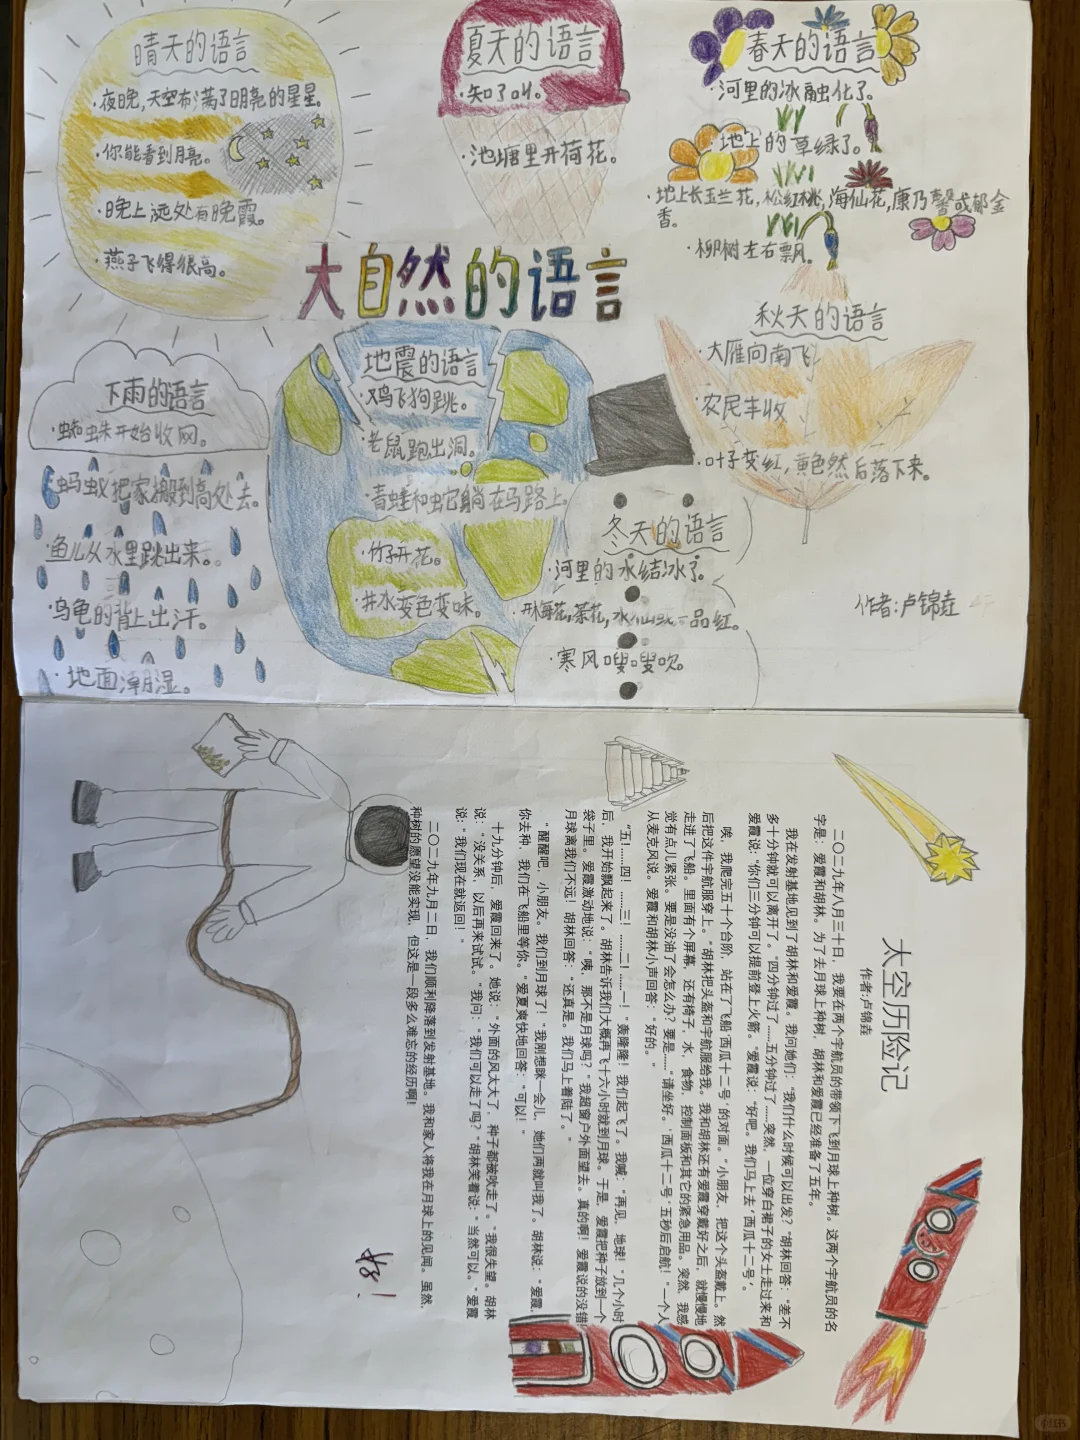 晴天的语言
·夜晚，天空布满了明亮的星星。
·你能看到月亮。
·晚上远处有晚霞。
·燕子飞得很高。
夏天的语言
·知了叫。
·池塘里开荷花。
春天的语言
·河里的冰融化了。
·地上的草绿了。
·地上长玉兰花，松红桃，海仙花，康乃馨或郁金
香。
·柳树左右飘。
大自然的语言
下雨的语言
·蜘蛛开始收网。
·蚂蚁把家搬到高处去。
·鱼儿从水里跳出来。
·乌龟的背上出汗。
·地面潮湿。
地震的语言
·鸡飞狗跳。
·老鼠跑出洞。
·青蛙和蛇躺在马路上
·竹子开花。
·井水变色变味。
秋天的语言
·大雁向南飞
·农民丰收
·叶子变红，黄色然后落下来。
冬天的语言
·河里的水结冰了。
·开梅花，茶花，水仙或一品红。
·寒风嗖嗖吹。
作者：卢锦垚
太空历险记
作者:卢锦垚
二〇二九年八月三十日，我要在两个宇航员的带领下飞到月球上种树。这两个宇航员的名
字是：爱霞和胡林。为了去月球上种树，胡林和爱霞已经准备了五年。
我在发射基地见到了胡林和爱霞。我问她们：“我们什么时候可以出发？”胡林回答：“差不
多十分钟就可以离开了。”四分钟过了……五分钟过了……突然，一位穿白裙子的女士走过来和
爱霞说：“你们三分钟可以提前登上火箭。”爱霞说：“好吧。我们马上去‘西瓜十二号’。
唉，我爬完五十个台阶，站在了飞船‘西瓜十二号’的对面。“小朋友，把这个头盔戴上。然
后把这件宇航服穿上。”胡林把头盔和宇航服给我。我和胡林还有爱霞穿戴好之后，就慢慢地
走进了飞船。里面有个屏幕，还有椅子，水，食物，控制面板和其它的紧急用品。突然，我感
觉有点儿紧张。要是没油了会怎么办？要是……“请坐好。‘西瓜十二号’五秒后启航！”一个人
从麦克风说。爱霞和胡林小声回答：“好的。”
“五！……四！……三！……二！……一！”轰隆隆！我们起飞了。我喊：“再见，地球！”几个小时
后，我开始飘起来了。胡林告诉我们大概再飞十六小时就到月球。于是，爱霞把种子放到一个
袋子里。爱霞激动地说：“咦，那不是月球吗？”我超窗户外面望去。真的啊！爱霞说的没错!
月球离我们不远！胡林回答：“还真是。我们马上着陆了。”
“醒醒吧，小朋友。我们到月球了！”我刚想眯一会儿，她们两就叫我了。胡林说：“爱霞，
你去种，我们在飞船里等你。”爱夏爽快地回答：“可以！”
十九分钟后，爱霞回来了。她说：“外面的风太大了，种子都被吹走了。”我很失望。胡林
说：“没关系，以后再来试试。”我问：“我们可以走了吗？”胡林笑着说：“当然可以。”爱霞
说：“我们现在就返回！”
二〇二九年九月二日，我们顺利降落到发射基地。我和家人将我在月球上的见闻。虽然，
种树的愿望没能实现，但这是一段多么难忘的经历啊！
小红书